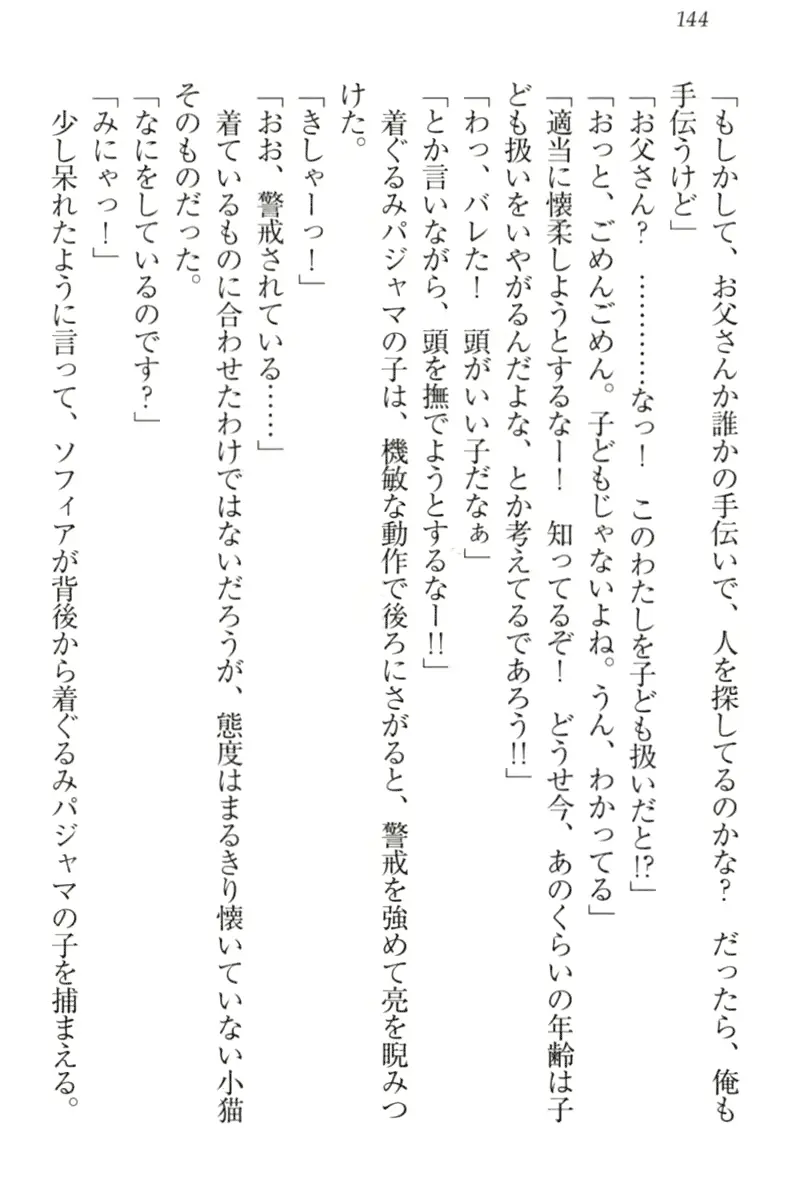 144
「もしかして、お父さんか誰かの手伝いで、人を探してるのかな？　だったら、俺も
手伝うけど」
「お父さん？　…………なっ！　このわたしを子ども扱いだと!?」
「おっと、ごめんごめん。子どもじゃないよね。うん、わかってる」
「適当に懐柔しようとするなー！　知ってるぞ！　どうせ今、あのくらいの年齢は子
ども扱いをいやがるんだよな、とか考えてるであろう!!」
「わっ、バレた！　頭がいい子だなぁ」
「とか言いながら、頭を撫でようとするなー!!」
　着ぐるみパジャマの子は、機敏な動作で後ろにさがると、警戒を強めて亮を睨みつ
けた。
「きしゃーっ！」
「おお、警戒されている……」
　着ているものに合わせたわけではないだろうが、態度はまるきり懐いていない小猫
そのものだった。
「なにをしているのです？」
「みにゃっ！」
　少し呆れたように言って、ソフィアが背後から着ぐるみパジャマの子を捕まえる。